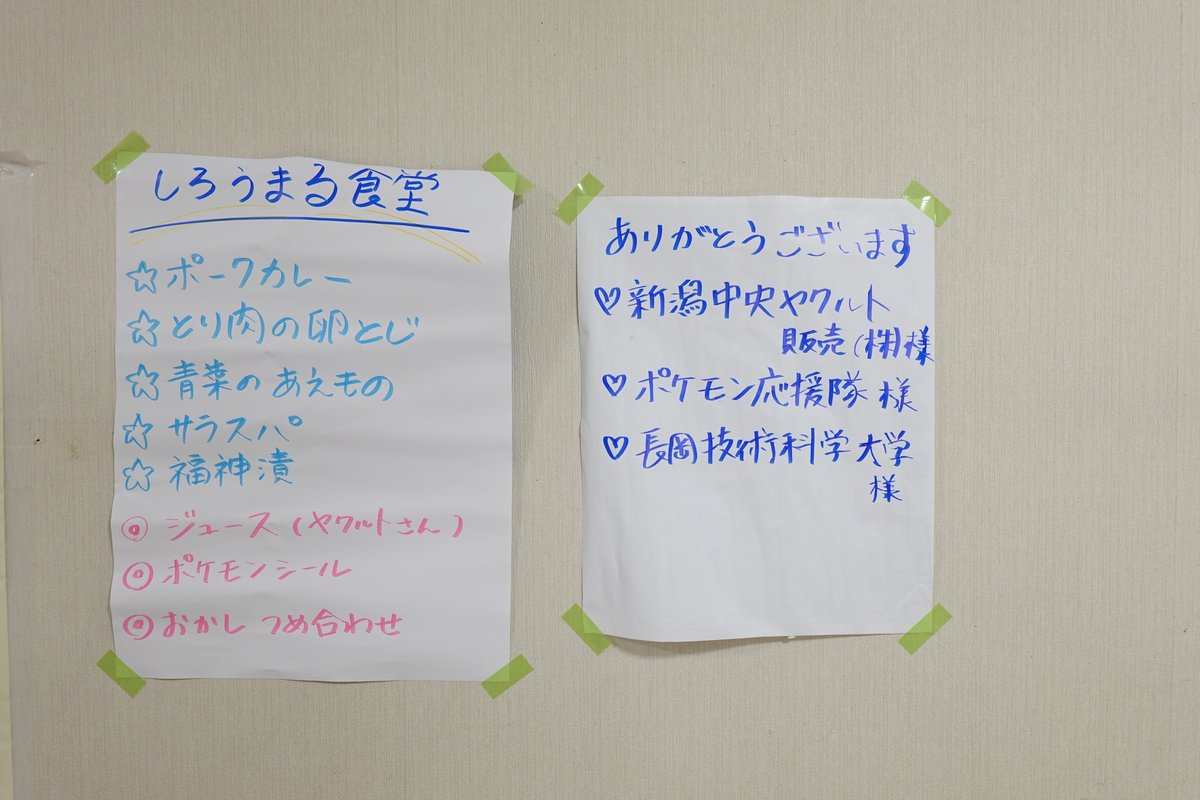 しろうまる食堂
☆ポークカレー
☆とり肉の卵とじ
☆青菜のあえもの
☆サラスパ
☆福神漬
◎ジュース(ヤクルトさん)
◎ポケモンシール
◎おかしつめ合わせ
ありがとうございます
♡新潟中央ヤクルト
販売(株)様
♡ポケモン応援隊 様
♡長岡技術科学大学
様